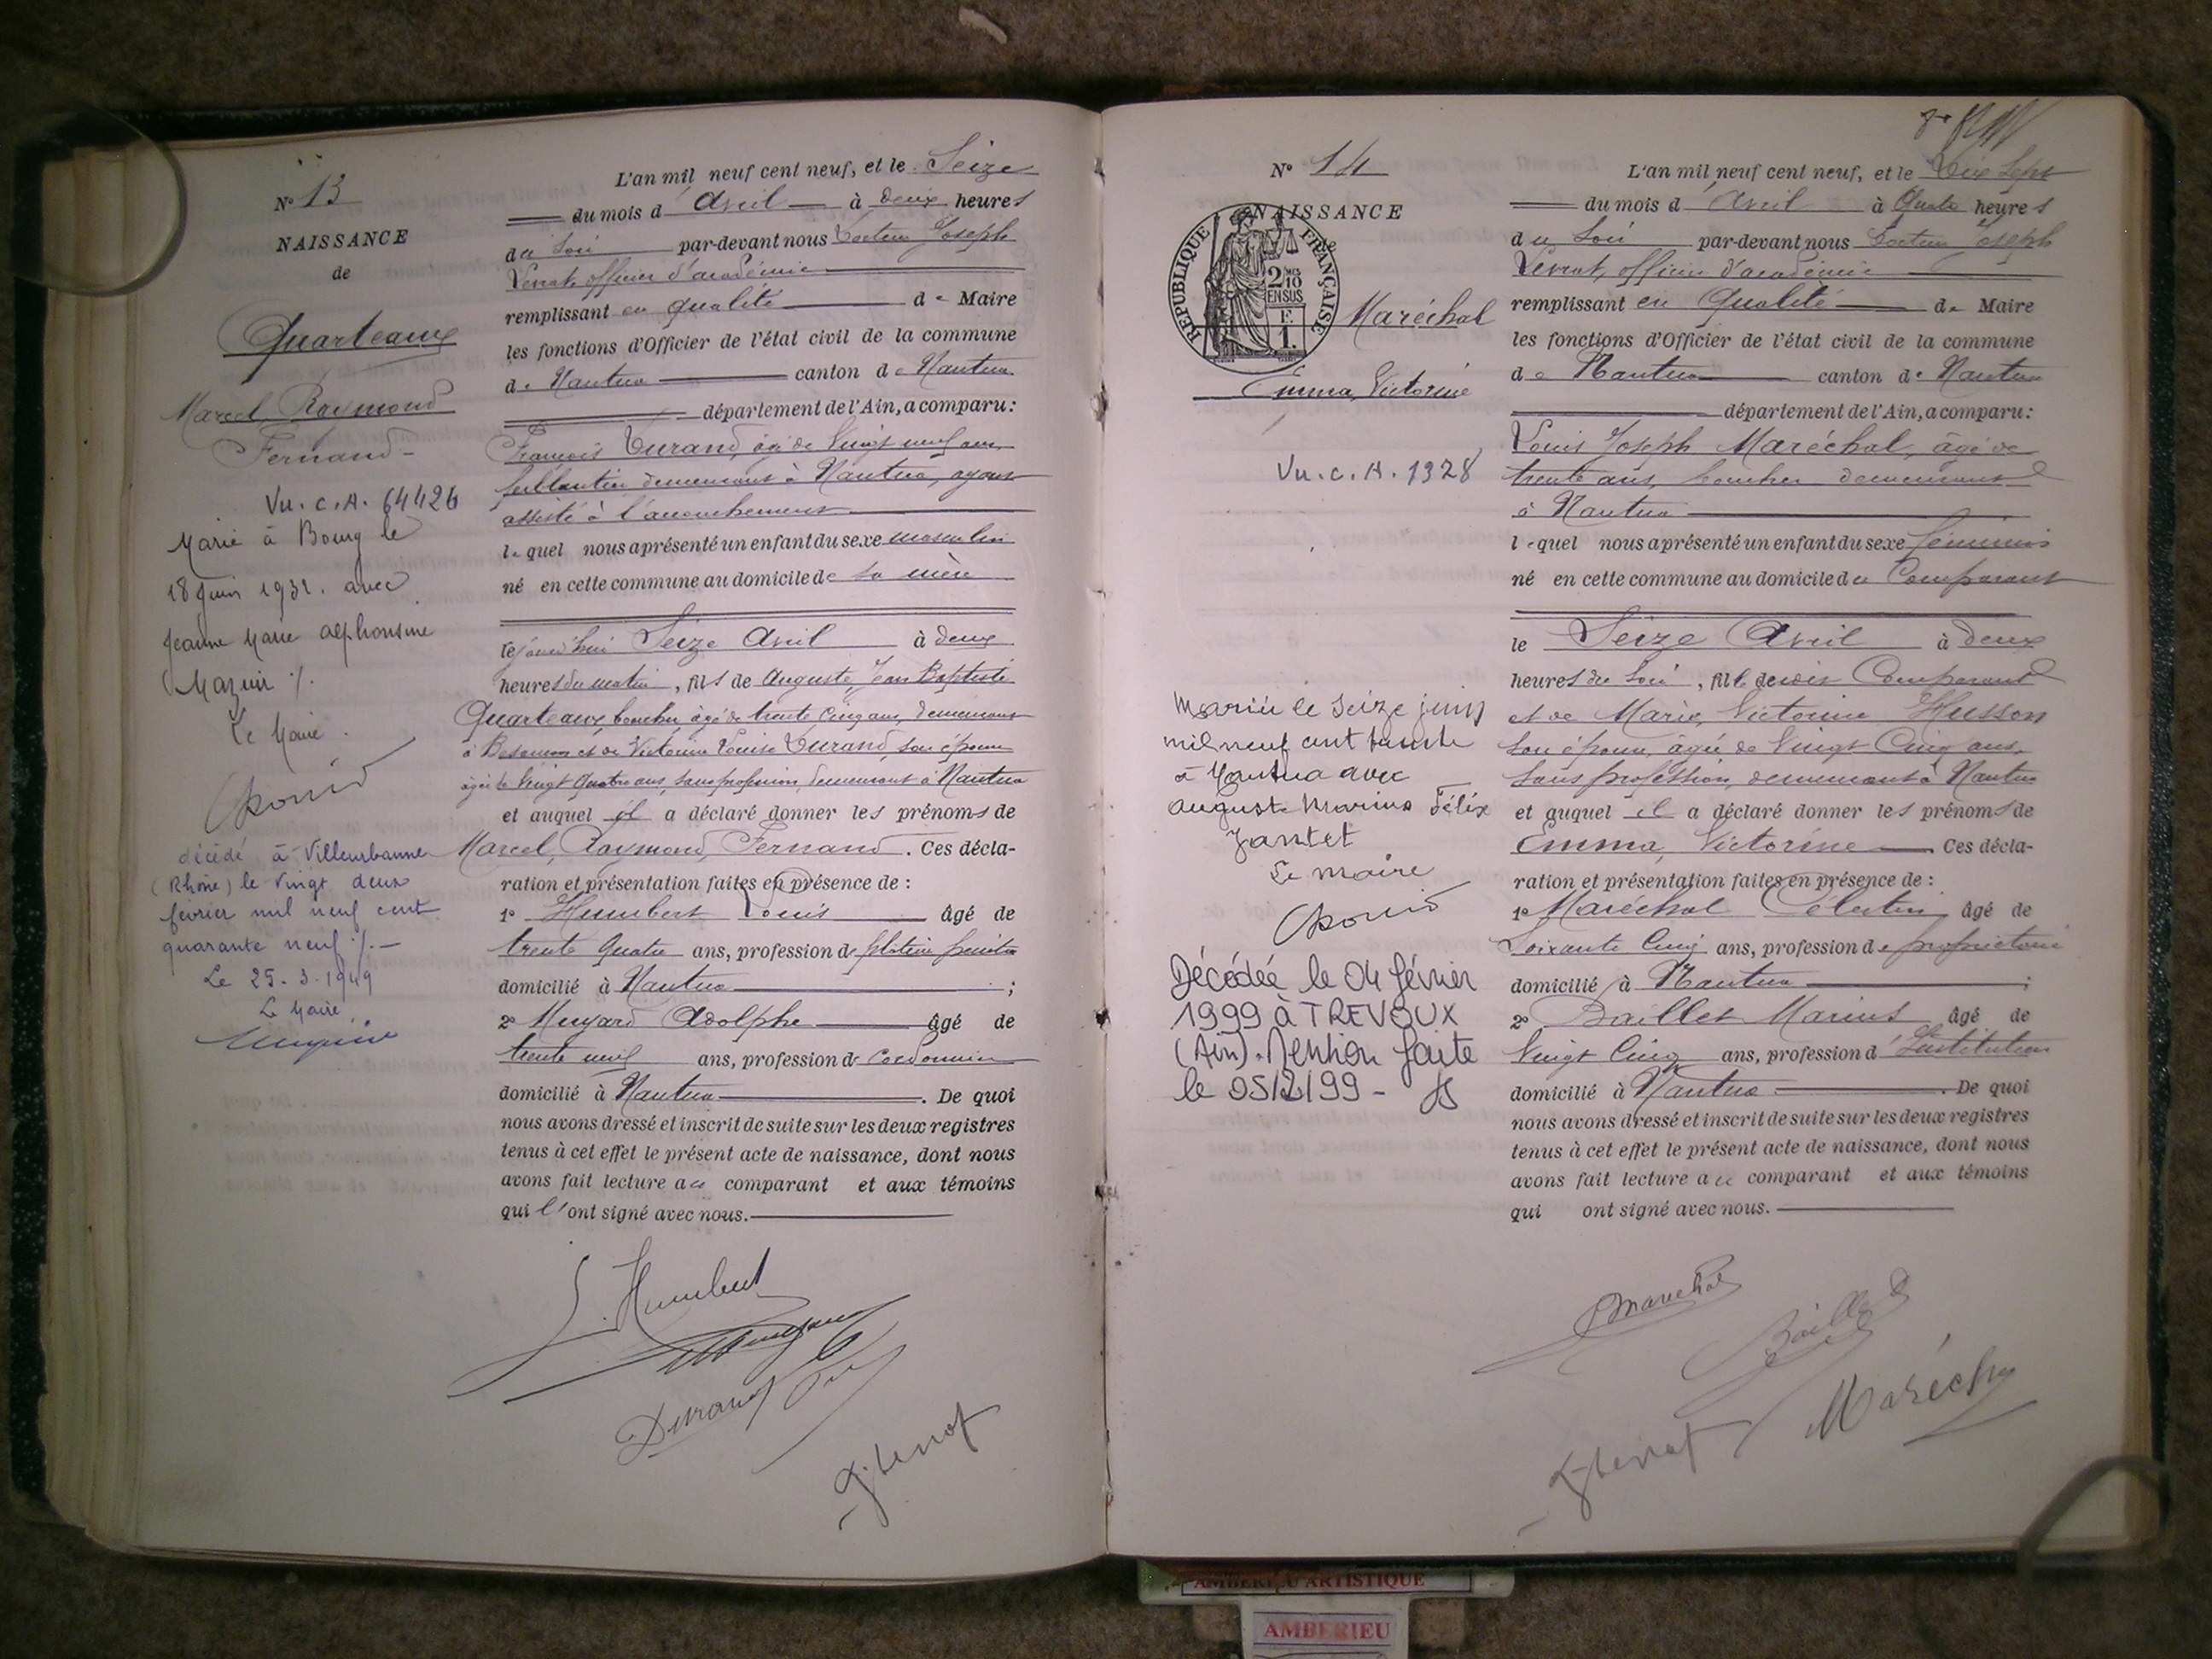 N° 13
NAISSANCE
de
Quarteaux
Marcel, Raymond
Fernand -
Vu. C. A. 64426
Marié à Bourg le
18 Juin 1931. avec
Jeanne Marie Alphonsine
Mazuir ./.
Le Maire.
décédé à Villeurbanne
(Rhône) le vingt deux
février mil neuf cent
quarante neuf ./. -
Le 25-3-1949
Le Maire,
L'an mil neuf cent neuf, et le Seize
du mois d'Avril à deux heures
du Soir par-devant nous Docteur Joseph
officier d'académie
remplissant en qualité de Maire
les fonctions d'Officier de l'état civil de la commune
de Nantua canton de Nantua
département de l'Ain, a comparu :
François Durand, âgé de Vingt neuf ans,
ferblantier demeurant à Nantua, ayant
assisté à l'accouchement
lequel nous a présenté un enfant du sexe masculin
né en cette commune au domicile de sa mère
le jourd'hui Seize Avril à deux
heures du matin, fils de Auguste, Jean Baptiste
Quarteaux, boucher âgé de trente cinq ans, demeurant
à Besançon et de Victorine Louise Durand, son épouse
âgée de Vingt Quatre ans, sans profession, demeurant à Nantua
et auquel il a déclaré donner les prénoms de
Marcel, Raymond, Fernand. Ces décla-
ration et présentation faites en présence de :
1° Humbert Louis âgé de
trente Quatre ans, profession de plâtrier peintre
domicilié à Nantua ;
2° Muyard Adolphe âgé de
trente neuf ans, profession de Cordonnier
domicilié à Nantua. De quoi
nous avons dressé et inscrit de suite sur les deux registres
tenus à cet effet le présent acte de naissance, dont nous
avons fait lecture au comparant et aux témoins
qui l'ont signé avec nous.
L. Humbert
Durand
N° 14
NAISSANCE
RÉPUBLIQUE FRANÇAISE
2/10 EN SUS
F. 1.
Maréchal
Emma, Victorine
Vu. C. A. 1328
Mariée le seize juin
mil neuf cent trente
à Nantua avec
Auguste Marius Félix
Jantet
Le maire
Décédée le 04 février
1999 à TREVOUX
(Ain). Mention faite
le 05/2/99 -
L'an mil neuf cent neuf, et le Dix Sept
du mois d'Avril à Quatre heures
du Soir par-devant nous Docteur Joseph
officier d'académie
remplissant en Qualité de Maire
les fonctions d'Officier de l'état civil de la commune
de Nantua canton de Nantua
département de l'Ain, a comparu :
Louis Joseph Maréchal, âgé de
trente ans, boucher demeurant
à Nantua
lequel nous a présenté un enfant du sexe féminin
né en cette commune au domicile du Comparant
le Seize Avril à deux
heures du Soir, fille dudit Comparant
et de Marie, Victorine Husson
son épouse, âgée de Vingt Cinq ans,
sans profession, demeurant à Nantua
et auquel il a déclaré donner les prénoms de
Emma, Victorine. Ces décla-
ration et présentation faites en présence de :
1° Maréchal Célestin, âgé de
Soixante Cinq ans, profession de propriétaire
domicilié à Nantua ;
2° Baillet Marius âgé de
Vingt Cinq ans, profession d'Instituteur
domicilié à Nantua. De quoi
nous avons dressé et inscrit de suite sur les deux registres
tenus à cet effet le présent acte de naissance, dont nous
avons fait lecture au comparant et aux témoins
qui ont signé avec nous.
Marechal
Baillet
Maréchal
AMBERIEU ARTISTIQUE
AMBERIEU